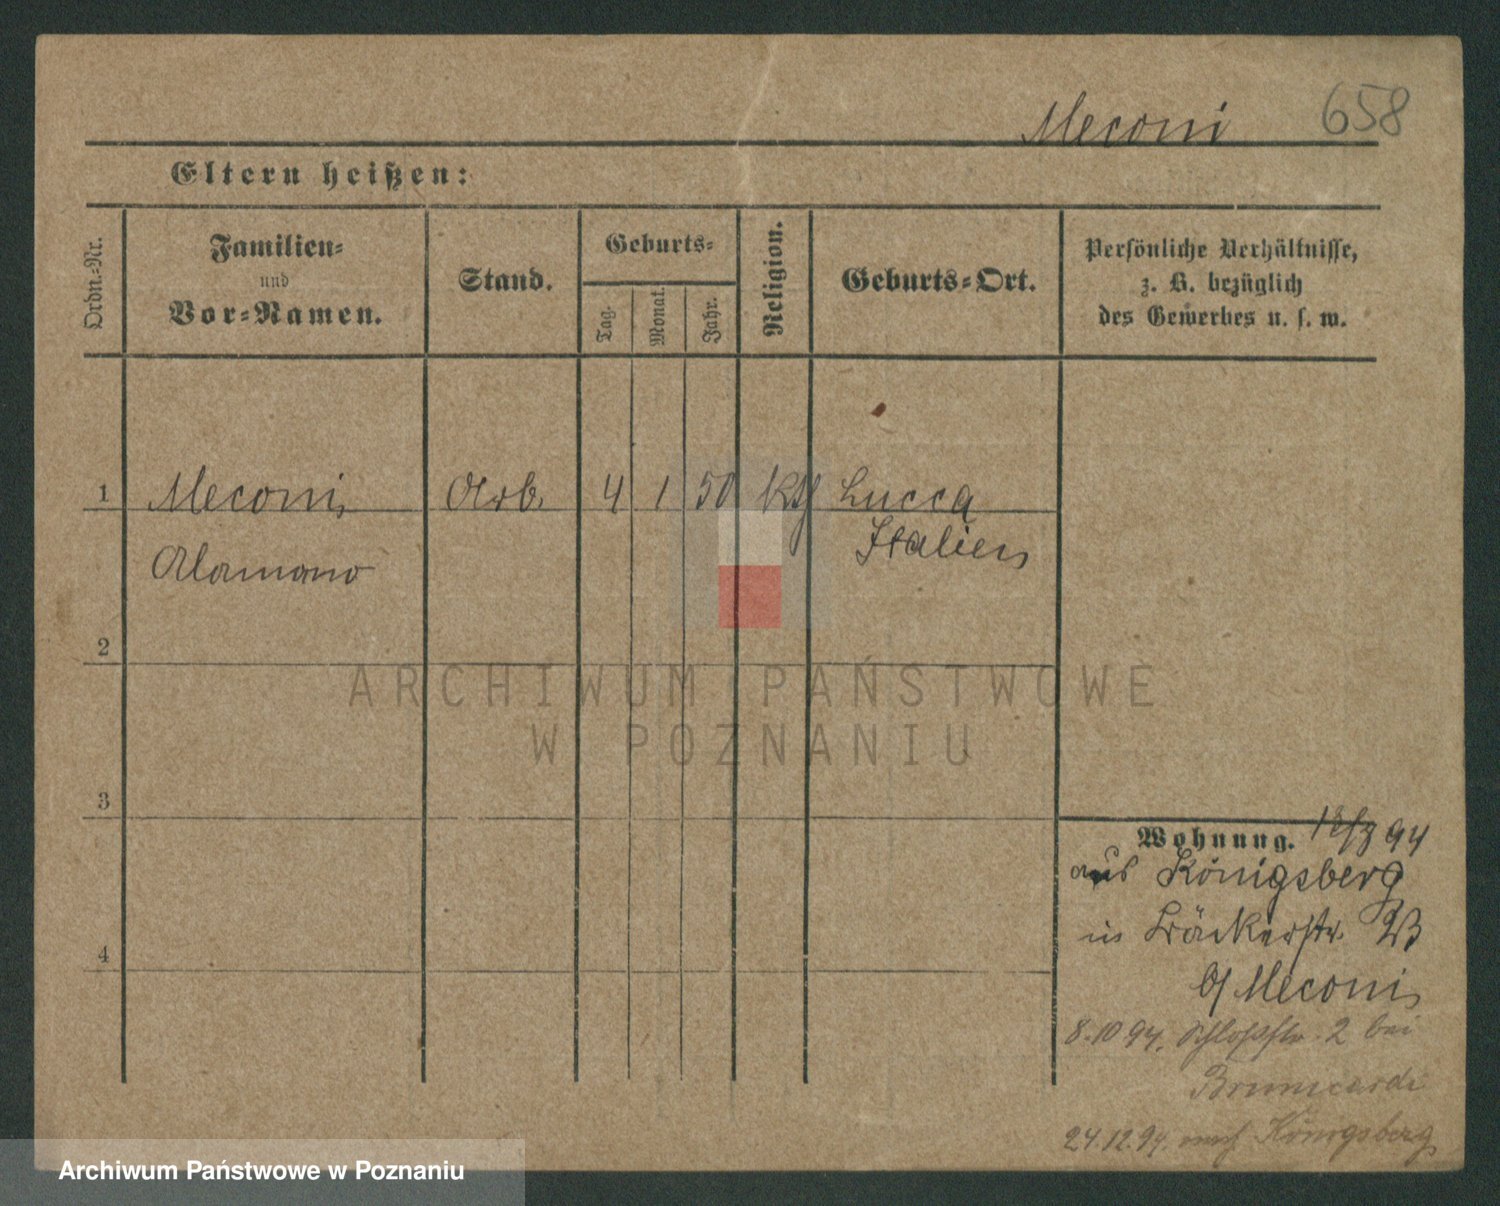 Meconi 658
Eltern heißen:
Ordn.-Nr.
Familien-
und
Vor-Namen.
Stand.
Geburts-
Tag.
Monat.
Jahr.
Religion.
Geburts-Ort.
Persönliche Verhältnisse,
z. B. bezüglich
des Gewerbes u. s. w.
1 Meconi, Arb. 4 1 50 kth Lucca
Alamano Italien
2
3
4
ARCHIWUM PAŃSTWOWE
W POZNANIU
Wohnung. 94
aus Königsberg
in Bäckerstr. 23
b/ Meconi
8.10 94. Schloßstr. 2 bei
24.12.94. nach Königsberg
Archiwum Państwowe w Poznaniu